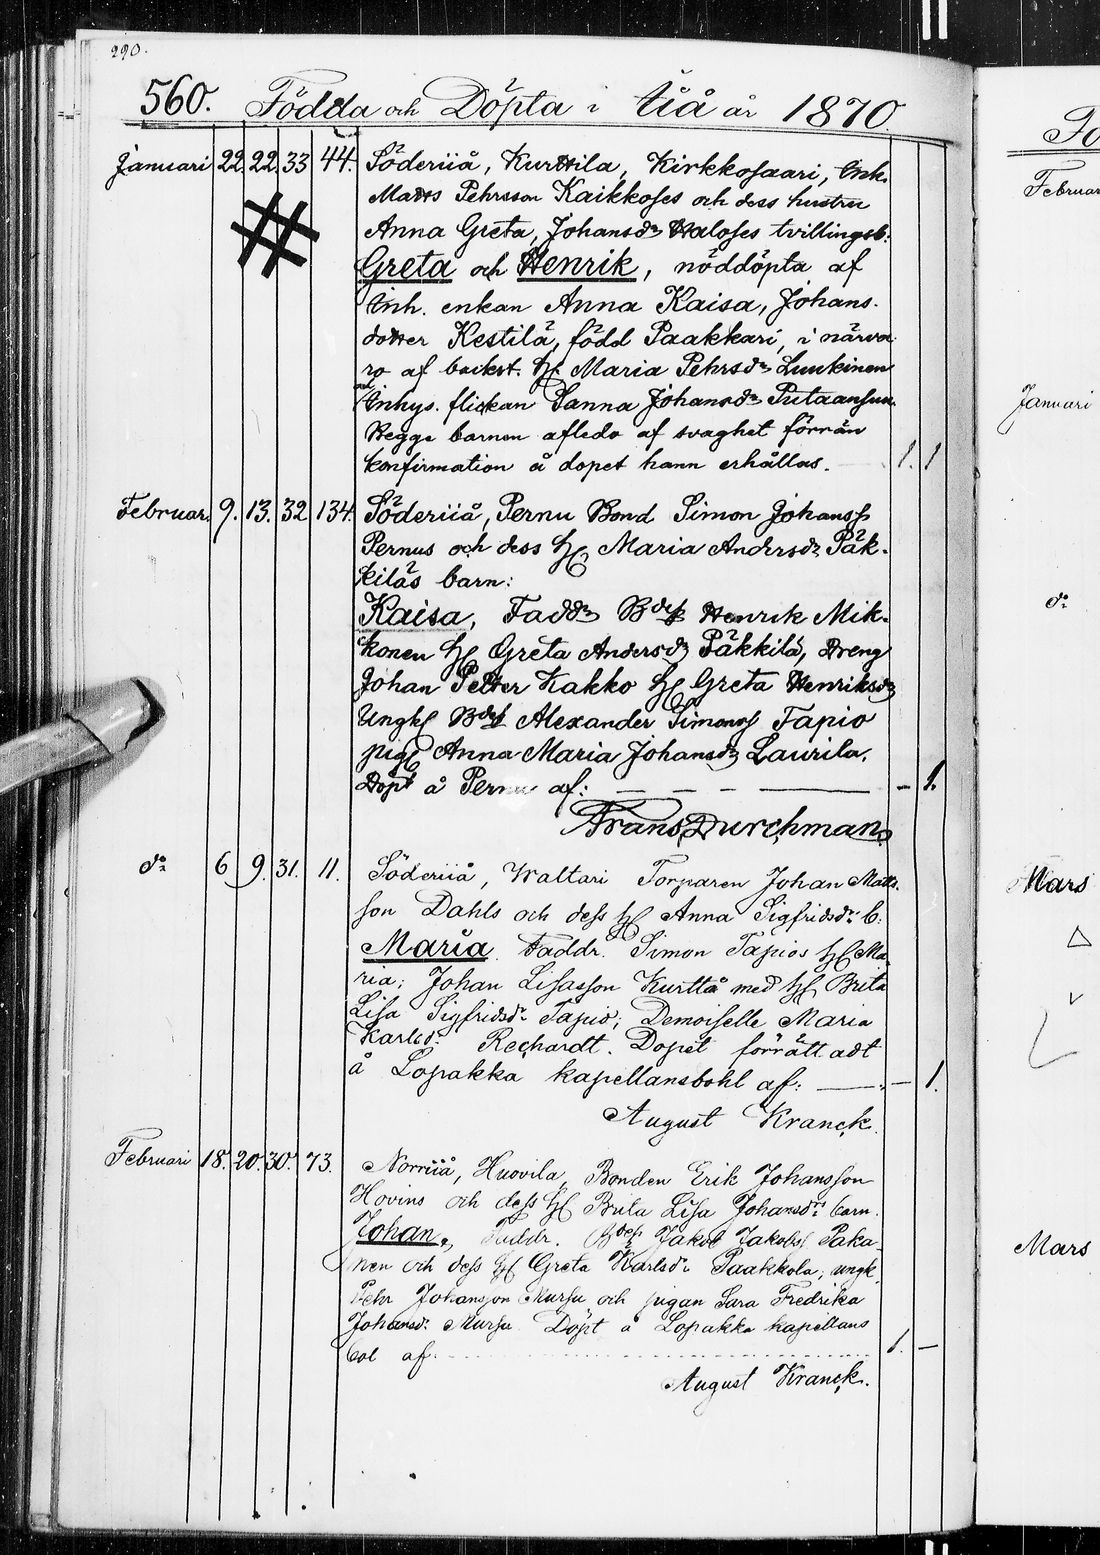 290.
560. Födda och Döpta i Iiå år 1870.
Januari 22. 22. 33 44. Söderiiå, Kurttila, Kirkkosaari, Inh.
Matts Pehrsson Kaikkoses och dess hustru
Anna Greta, Johansdr Haloses tvillingsb:
Greta och Henrik, nöddöpta af
Inh. enkan Anna Kaisa, Johans-
dotter Kestilä, född Paakkari, i närva-
ro af backst. H. Maria Pehrsdr Luukinen
Inhys. flickan Sanna Johansdr Putaansuu.
Begge barnen afledo af svaghet förrän
konfirmation å dopet hann erhållas. 1. 1
Februar. 9. 13. 32 134. Söderiiå, Pernu Bond Simon Johanss
Pernus och dess H. Maria Andersdr Päk-
kiläs barn:
Kaisa, Faddr Bdess Henrik Mik-
konen H. Greta Andersdr Päkkilä, Dreng
Johan Petter Kakko H. Greta Henriksdr
Ungk. Bdes Alexander Simons Tapio
pig. Anna Maria Johansdr Laurila.
Döpt å Pernu af: — 1.
Frans Durchman
do 6 9. 31. 11. Söderiiå, Waltari Torparen Johan Matts-
son Dahls och dess H. Anna Sigfridsdr b.
Maria. Faddr. Simon Tapios H. Ma-
ria; Johan Lisasson Kurtta med H. Brita
Lisa Sigfridsdr Tapio; Demoiselle Maria
Karlsdr Rechardt. Dopet förrättadt
å Lopakka kapellansbohl af: — 1.
August Kranck.
Februari 18. 20. 30. 73. Norriiå, Huovila, Bonden Erik Johansson
Hovins och dess H. Brita Lisa Johansdrs barn
Johan, Faddr. Bdes Jakob Jakobss Paka-
nen och dess H. Greta Karlsdr Paakkola; ungk.
Pehr Johansson Mursu och pigan Sara Fredrika
Johansdr Mursu. Döpt å Lopakka kapellans
bol af: 1. —
August Kranck.
Februar
Januari
do
Mars
Mars